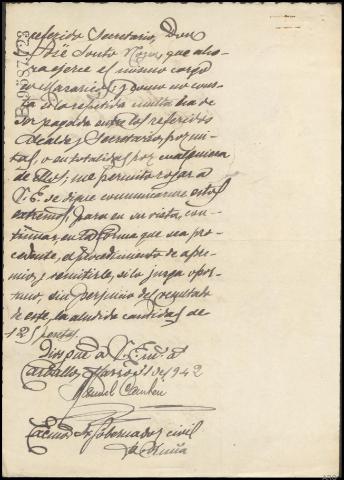 referido Secretario, Don
José Souto Nogu, que aho-
ra ejerce el mismo cargo
en Mazaricos; y como no cons-
ta si la repetida multa ha de
ser pagada entre los referidos
Alcalde y Secretario, por mi-
tad, o en totalidad por cualquiera
de ellos; me permito rogar a
V.E. se digne comunicarme estos
extremos, para en su vista, con-
tinuar, en la forma que sea pro-
cedente, el procedimiento de apre-
mio, y remitirle, si lo juzga opor-
tuno, sin perjuicio del resultado
de este, la aludida cantidad de
125 pesetas.
Dios gue a V.E. m. a.
Carballo, Marzo 31 de 1942
Manuel
Excmo Sr Gobernador civil
La Coruña